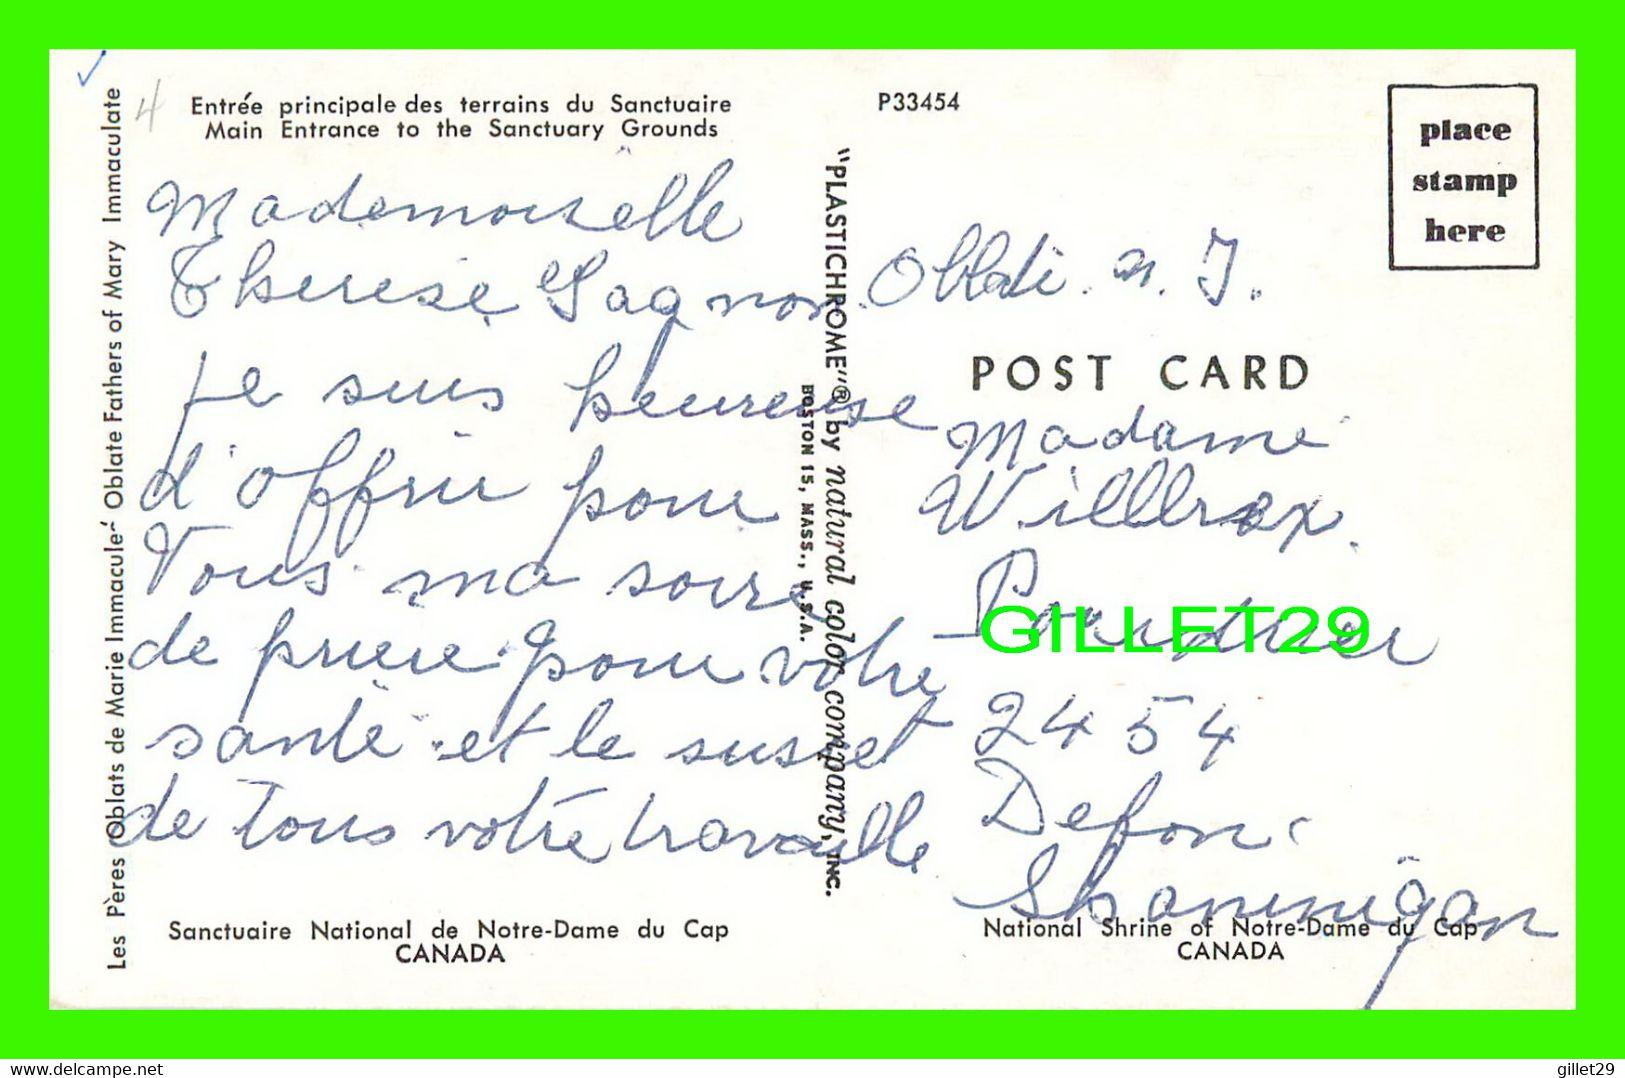 Entrée principale des terrains du Sanctuaire
Main Entrance to the Sanctuary Grounds
4
Mademoiselle
Therese Gagnon. Oblate. M. I.
je suis heureuse
d'offrir pour
Vous ma soire
de priere pour votre
santé et le susset
de tous votre travaille
Sanctuaire National de Notre-Dame du Cap
CANADA
Les Pères Oblats de Marie Immaculée - Oblate Fathers of Mary Immaculate
"PLASTICHROME"® by natural color company, INC.
BOSTON 15, MASS., U.S.A.
P33454
place
stamp
here
POST CARD
Madame
Willbrox
GILLET29
2454
Defon
Shaninigan
National Shrine of Notre-Dame du Cap
CANADA
www.delcampe.net
gillet29